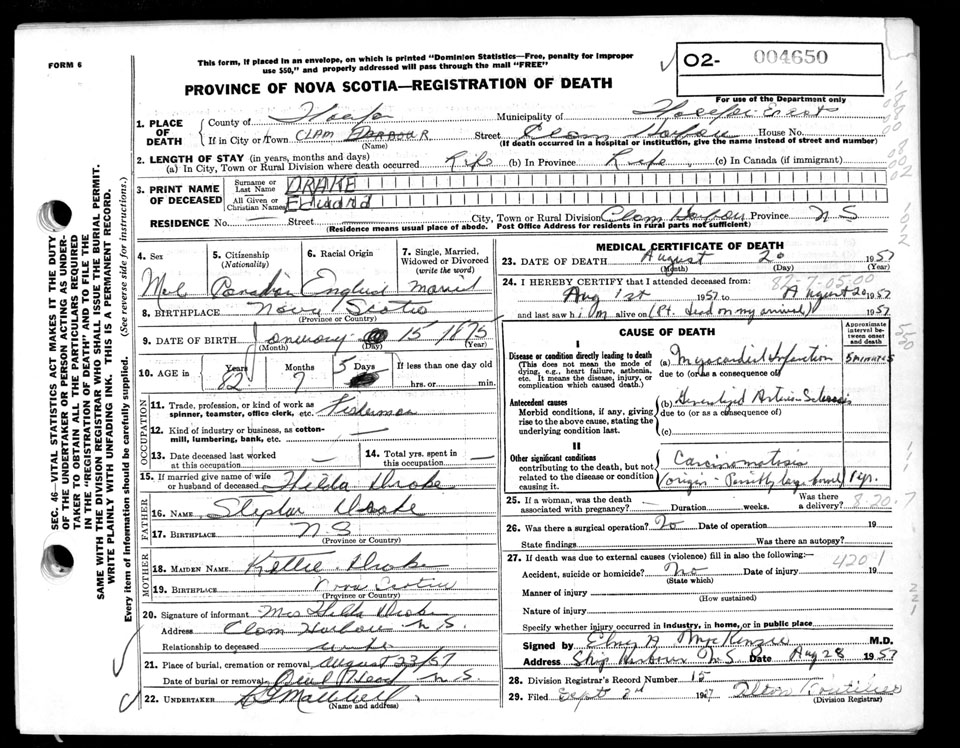 FORM 6
This form, if placed in an envelope, on which is printed "Dominion Statistics—Free, penalty for improper
use $50," and properly addressed will pass through the mail "FREE"
O2- 004650
PROVINCE OF NOVA SCOTIA—REGISTRATION OF DEATH
For use of the Department only
1. PLACE OF DEATH
County of Municipality of
If in City or Town CLAM HARBOUR Street Clam Harbour House No.
(Name) (If death occurred in a hospital or institution, give the name instead of street and number)
2. LENGTH OF STAY (in years, months and days)
(a) In City, Town or Rural Division where death occurred Life (b) In Province Life (c) In Canada (if immigrant)
3. PRINT NAME OF DECEASED
Surname or Last Name DRAKE
All Given or Christian Names Edward
RESIDENCE No. — Street City, Town or Rural Division Clam Harbour Province N S
(Residence means usual place of abode. Post Office Address for residents in rural parts not sufficient)
SEC. 46—VITAL STATISTICS ACT MAKES IT THE DUTY
OF THE UNDERTAKER OR PERSON ACTING AS UNDER-
TAKER TO OBTAIN ALL THE PARTICULARS REQUIRED
IN THE "REGISTRATION OF DEATH" AND TO FILE THE
SAME WITH THE DIVISION REGISTRAR WHO SHALL ISSUE THE BURIAL PERMIT.
WRITE PLAINLY WITH UNFADING INK. THIS IS A PERMANENT RECORD.
Every item of information should be carefully supplied. (See reverse side for instructions.)
4. Sex 5. Citizenship (Nationality) 6. Racial Origin 7. Single, Married, Widowed or Divorced (write the word)
Male Canadian English Married
8. BIRTHPLACE Nova Scotia
(Province or Country)
9. DATE OF BIRTH January 15 1875
(Month) (Day) (Year)
10. AGE in Years Months Days If less than one day old
82 7 5 hrs. or min.
OCCUPATION
11. Trade, profession, or kind of work as
spinner, teamster, office clerk, etc. Fisherman
12. Kind of industry or business, as cotton-
mill, lumbering, bank, etc. —
13. Date deceased last worked
at this occupation —
14. Total yrs. spent in
this occupation —
15. If married give name of wife
or husband of deceased Hilda Drake
FATHER
16. NAME Drake
17. BIRTHPLACE N S
(Province or Country)
MOTHER
18. MAIDEN NAME Kettie Drake
19. BIRTHPLACE Nova Scotia
(Province or Country)
20. Signature of informant Mrs Hilda Drake
Address Clam Harbour N.S.
Relationship to deceased wife
21. Place of burial, cremation or removal August 23/57
Date of burial or removal Owl Head N.S.
22. UNDERTAKER
(Name and address)
MEDICAL CERTIFICATE OF DEATH
23. DATE OF DEATH August 20 1957
(Month) (Day) (Year)
82-7-05-00
24. I HEREBY CERTIFY that I attended deceased from:
Aug 1st 1957 to August 20 1957
and last saw him alive on (Pt. dead on my arrival) 1957
CAUSE OF DEATH
Approximate interval between onset and death
I
Disease or condition directly leading to death
(This does not mean the mode of dying, e.g., heart failure, asthenia, etc. It means the disease, injury, or complication which caused death.)
(a) Myocardial Infarction 5 minutes
due to (or as a consequence of)
Antecedent causes
Morbid conditions, if any, giving rise to the above cause, stating the underlying condition last.
(b) Generalized Arterio-Sclerosis
due to (or as a consequence of)
(c)
II
Other significant conditions
contributing to the death, but not related to the disease or condition causing it.
Carcinomatosis
(origin - Possibly large bowel) 1 yr.
25. If a woman, was the death associated with pregnancy? — Duration weeks. Was there a delivery?
8-20-7
26. Was there a surgical operation? No Date of operation 19
State findings Was there an autopsy?
27. If death was due to external causes (violence) fill in also the following:—
420 1
Accident, suicide or homicide? No Date of injury 19
(State which)
Manner of injury
(How sustained)
Nature of injury
Specify whether injury occurred in industry, in home, or in public place
Signed by A MacKenzie M.D.
Address Ship Harbour N.S. Date Aug 28 1957
28. Division Registrar's Record Number 15
29. Filed Sept 2nd 1957 Alton
(Division Registrar)